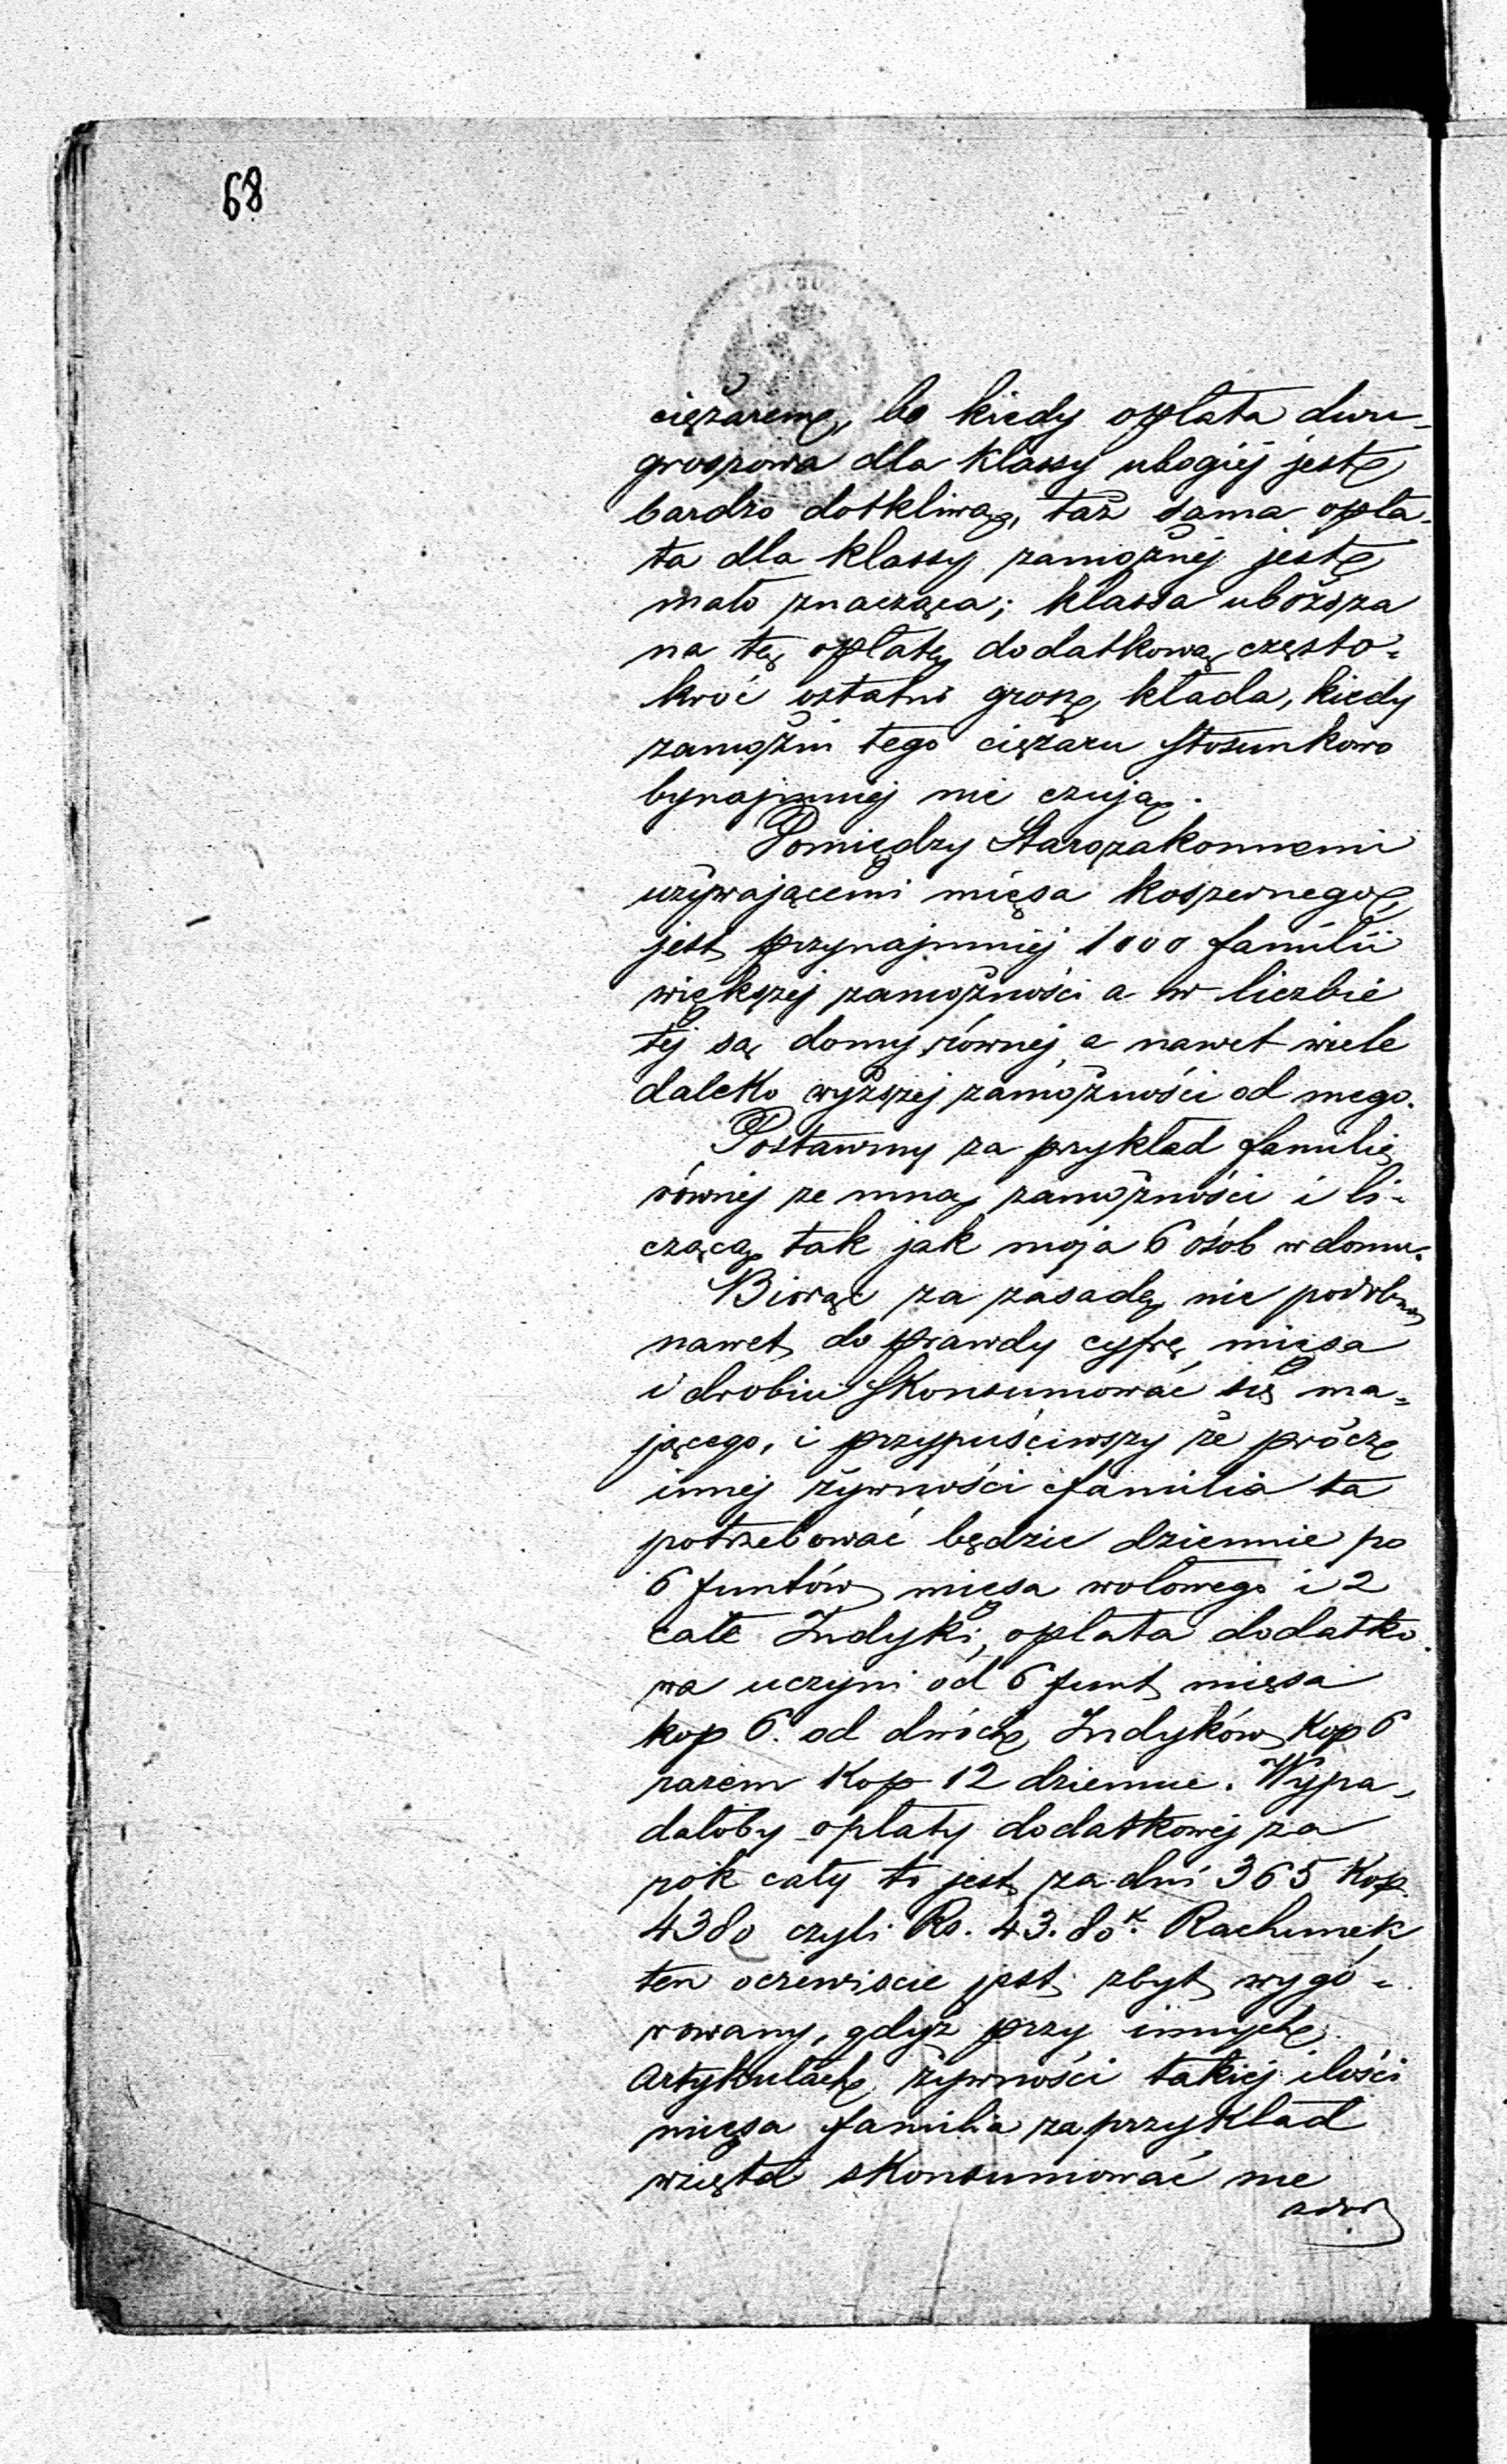 68
ciężarem, bo kiedy opłata dwu-
groszowa dla klassy ubogiéj jest
bardzo dotkliwą, taż sama opła-
ta dla klassy zamożnéj jest
mało znacząca; klassa uboższa
na tę opłatę dodatkową często-
kroć ostatni grosz kłada, kiedy
zamożni tego ciężaru stosunkowo
bynajmniéj nie czują.
Pomiędzy Starozakonnemi
używającemi mięsa koszernego
jest przynajmniéj 1000 familii
większéj zamożności a w liczbie
téj są domy równéj a nawet wiele
daleko wyższéj zamożności od mego.
Postawmy za przykład familię
równéj ze mną zamożności i li-
czącą tak jak moja 6 osób w domu.
Biorąc za zasadę nie podobną
nawet do prawdy cyfrę mięsa
i drobiu skonsumować się ma-
jącego, i przypuściwszy że prócz
innéj żywności familia ta
potrzebować będzie dziennie po
6 funtów mięsa wołowego i 2
całe Indyki, opłata dodatko-
wa uczyni od 6 funt mięsa
kop 6. od dwóch Indyków Kop 6
razem Kop 12 dziennie. Wypa-
dałoby opłaty dodatkowéj za
rok cały to jest za dni 365 Kop
4380 czyli Rs. 43.80 k. Rachunek
ten oczewiscie jest zbyt wygó-
rowany, gdyż przy innych
artykułach żywności takiéj ilości
mięsa familia za przykład
wzięta skonsumować nie